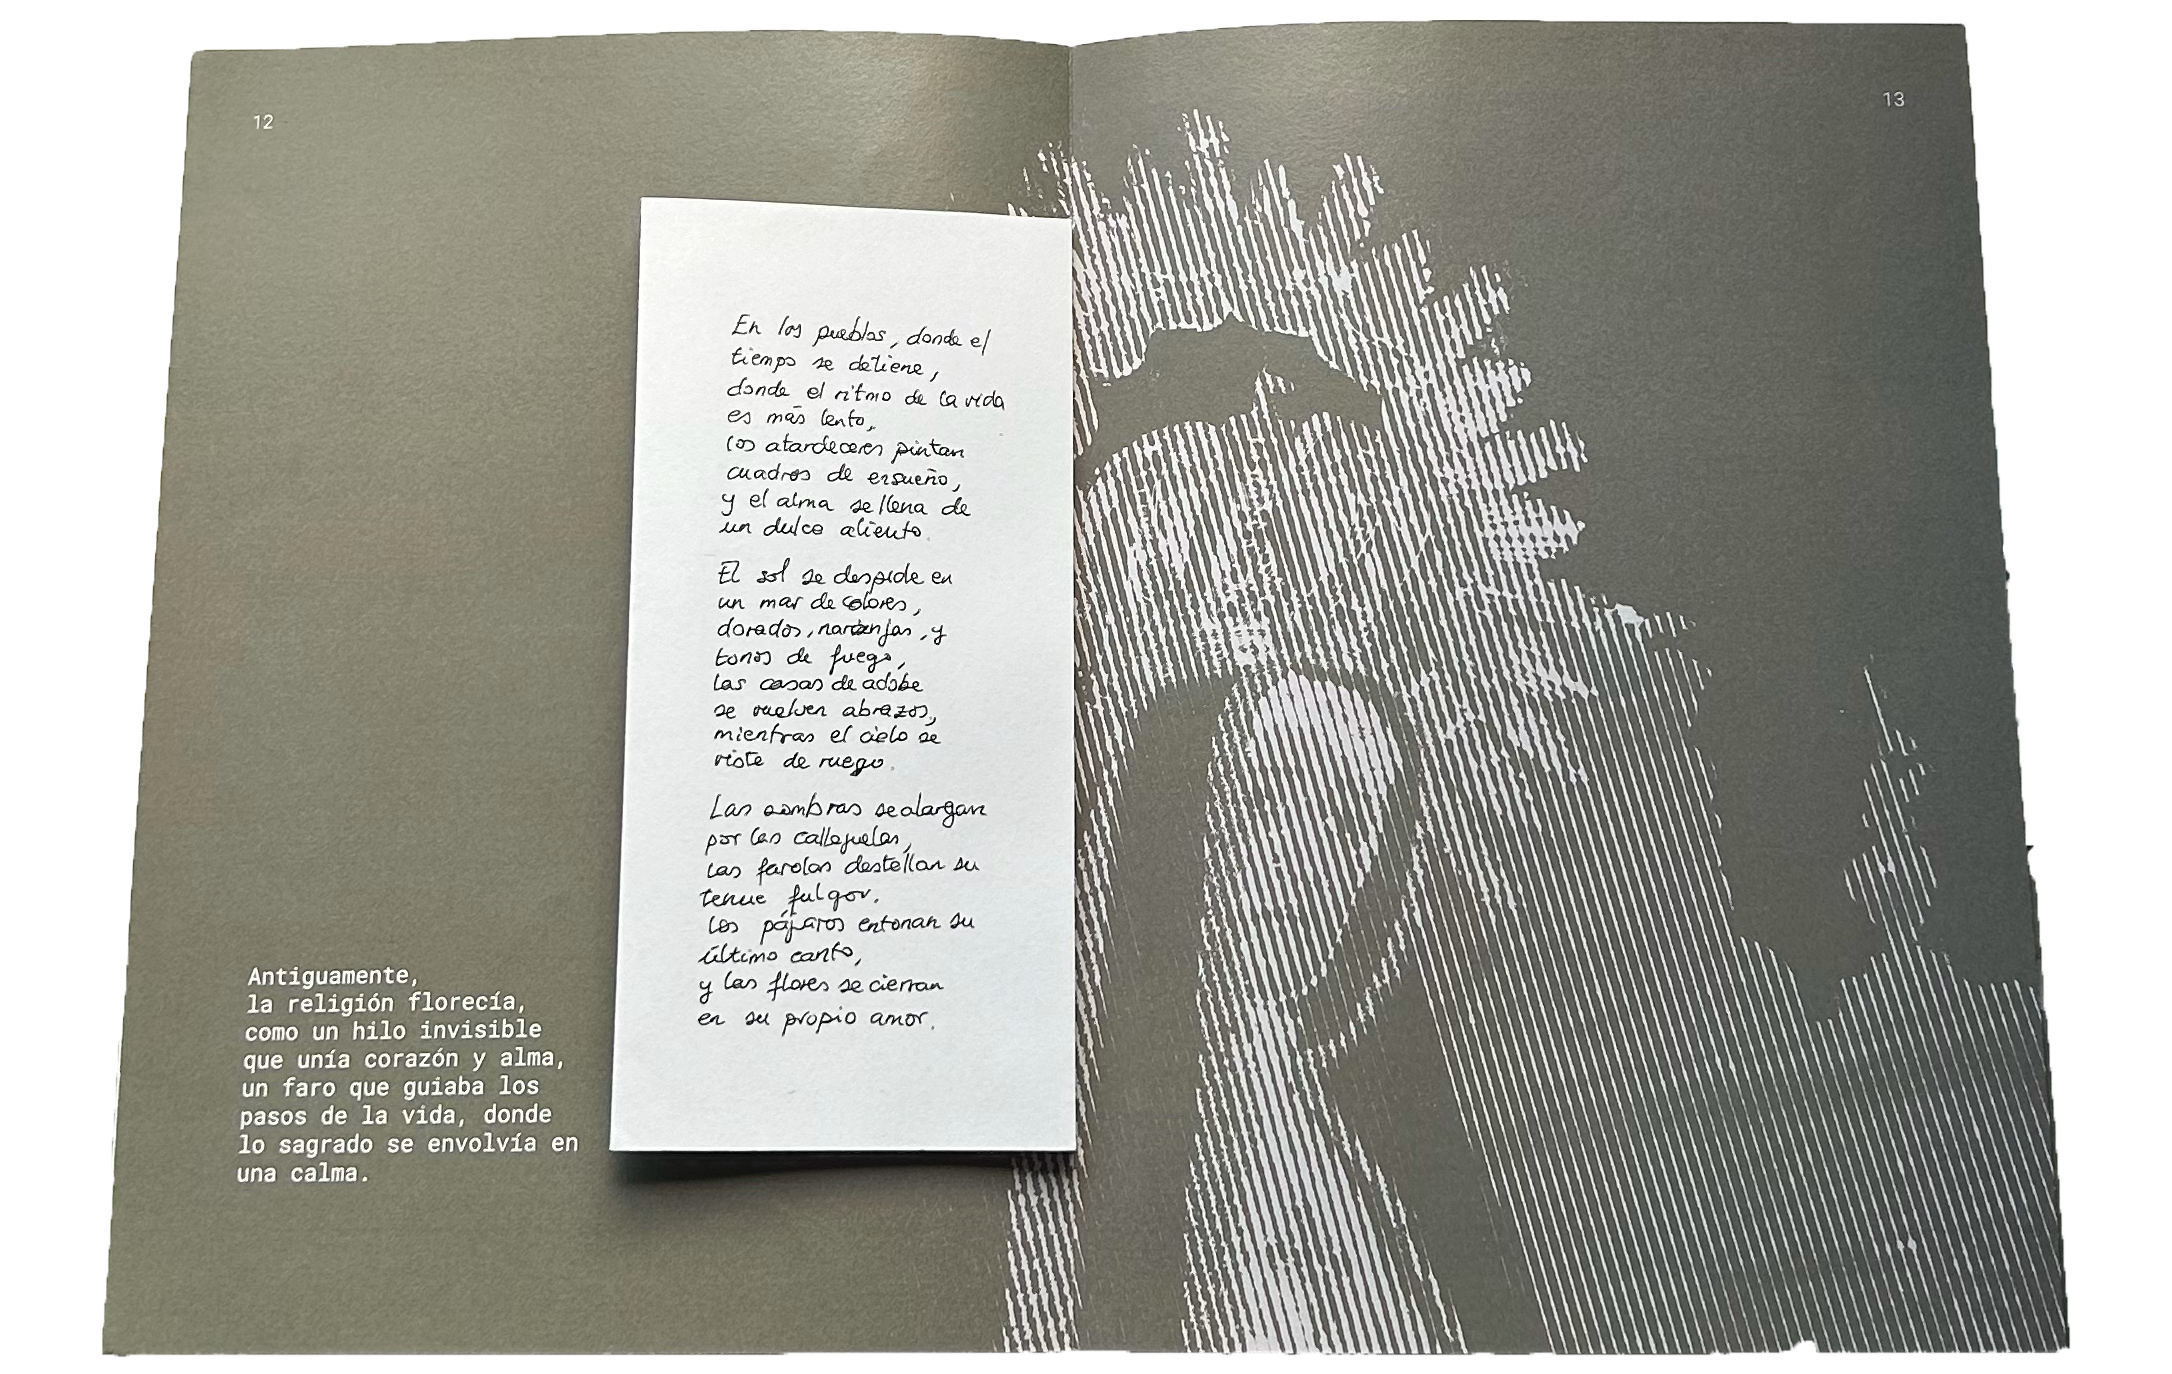 12
13
En los pueblos, donde el
tiempo se detiene,
donde el ritmo de la vida
es más lento,
los atardeceres pintan
cuadros de ensueño,
y el alma se llena de
un dulce aliento.
El sol se despide en
un mar de colores,
dorados, naranjas, y
tonos de fuego,
las casas de adobe
se vuelven abrazos,
mientras el cielo se
viste de ruego.
Las sombras se alargan
por las callejuelas,
las farolas destellan su
tenue fulgor.
Los pájaros entonan su
último canto,
y las flores se cierran
en su propio amor.
Antiguamente,
la religión florecía,
como un hilo invisible
que unía corazón y alma,
un faro que guiaba los
pasos de la vida, donde
lo sagrado se envolvía en
una calma.